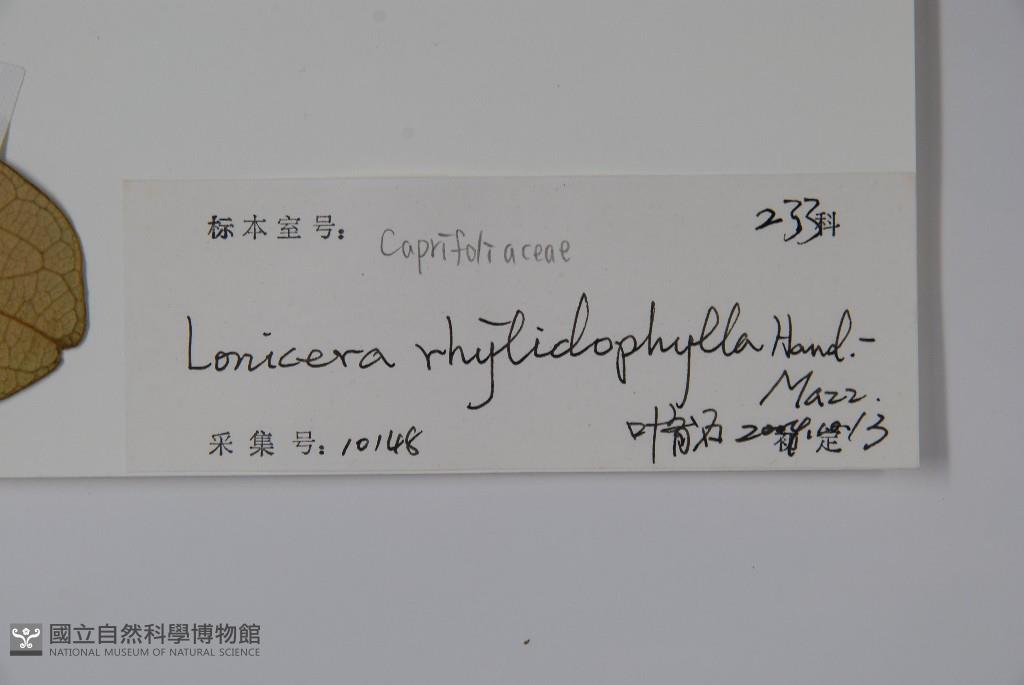 标本室号: 233科
Caprifoliaceae
Lonicera rhytidophylla Hand.-
Mazz.
采集号: 10148 叶育石
國立自然科學博物館
NATIONAL MUSEUM OF NATURAL SCIENCE